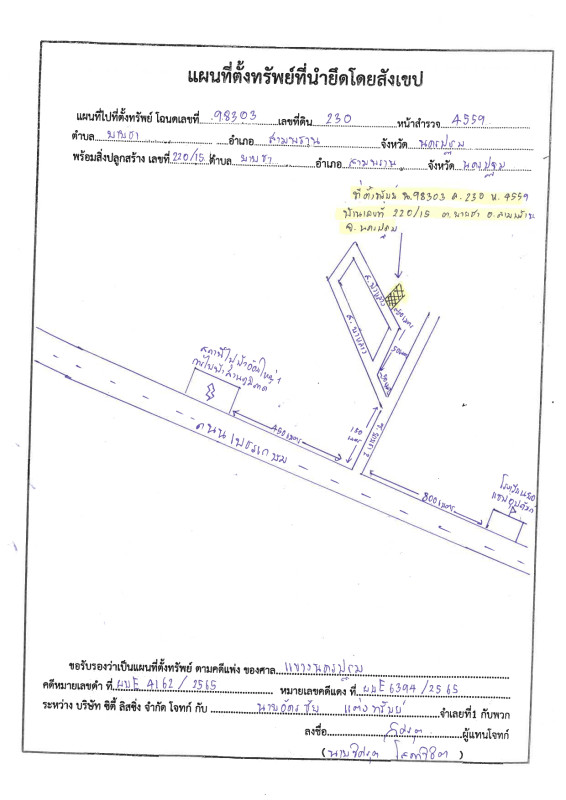 แผนที่ตั้งทรัพย์ที่นำยึดโดยสังเขป
แผนที่ไปที่ตั้งทรัพย์ โฉนดเลขที่ 98303 เลขที่ดิน 230 หน้าสำรวจ 4559
ตำบล ยายชา อำเภอ สามพราน จังหวัด นครปฐม
พร้อมสิ่งปลูกสร้าง เลขที่ 220/15 ตำบล ยายชา อำเภอ สามพราน จังหวัด นครปฐม
ที่ตั้งทรัพย์ ฉ.98303 ล.230 น.4559
บ้านเลขที่ 220/15 ต.ยายชา อ.สามพราน
จ.นครปฐม
50เมตร
สถานีไฟฟ้า
450เมตร
130
เมตร
ถนนเพชรเกษม
800เมตร
ขอรับรองว่าเป็นแผนที่ตั้งทรัพย์ ตามคดีแพ่ง ของศาล แขวงนครปฐม
คดีหมายเลขดำ ที่ ผบE 4162 / 2565 หมายเลขคดีแดง ที่ ผบE 6394 /2565
ระหว่าง บริษัท ซิตี้ ลิสซิ่ง จำกัด โจทก์ กับ นายฉัตรชัย แต่งทรัพย์ จำเลยที่1 กับพวก
ลงชื่อ ผู้แทนโจทก์